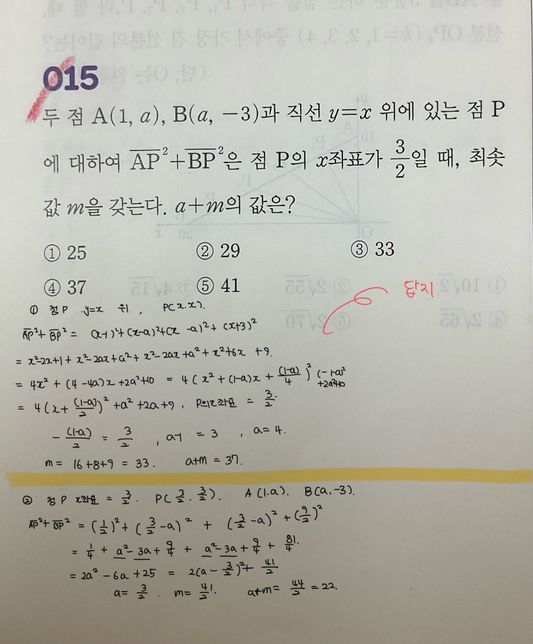 015
두 점 A(1, a), B(a, −3)과 직선 y=x 위에 있는 점 P
에 대하여 AP²+BP²은 점 P의 x좌표가 3/2일 때, 최솟
값 m을 갖는다. a+m의 값은?
① 25 ② 29 ③ 33
④ 37 ⑤ 41
답지
① 점 P y=x 위, P(x.x).
AP²+BP² = (x-1)²+(x-a)²+(x-a)²+(x+3)²
= x²-2x+1+x²-2ax+a²+x²-2ax+a²+x²+6x+9.
= 4x²+(4-4a)x+2a²+10 = 4(x²+(1-a)x+(1-a)/4)² (-1+a)² +2a²+10
= 4(x+(1-a)/2)²+a²+2a+9, P의 x좌표 = 3/2.
-(1-a)/2 = 3/2, a-1=3, a=4.
m= 16+8+9 = 33. a+m = 37.
② 점 P x좌표 = 3/2. P(3/2. 3/2). A(1.a). B(a,-3).
AP²+BP² = (1/2)²+(3/2-a)²+(3/2-a)²+(9/2)²
= 1/4+a²-3a+9/4+a²-3a+9/4+81/4.
= 2a²-6a+25 = 2(a-3/2)²+41/2
a= 3/2. m= 41/2. a+m= 44/2 = 22.